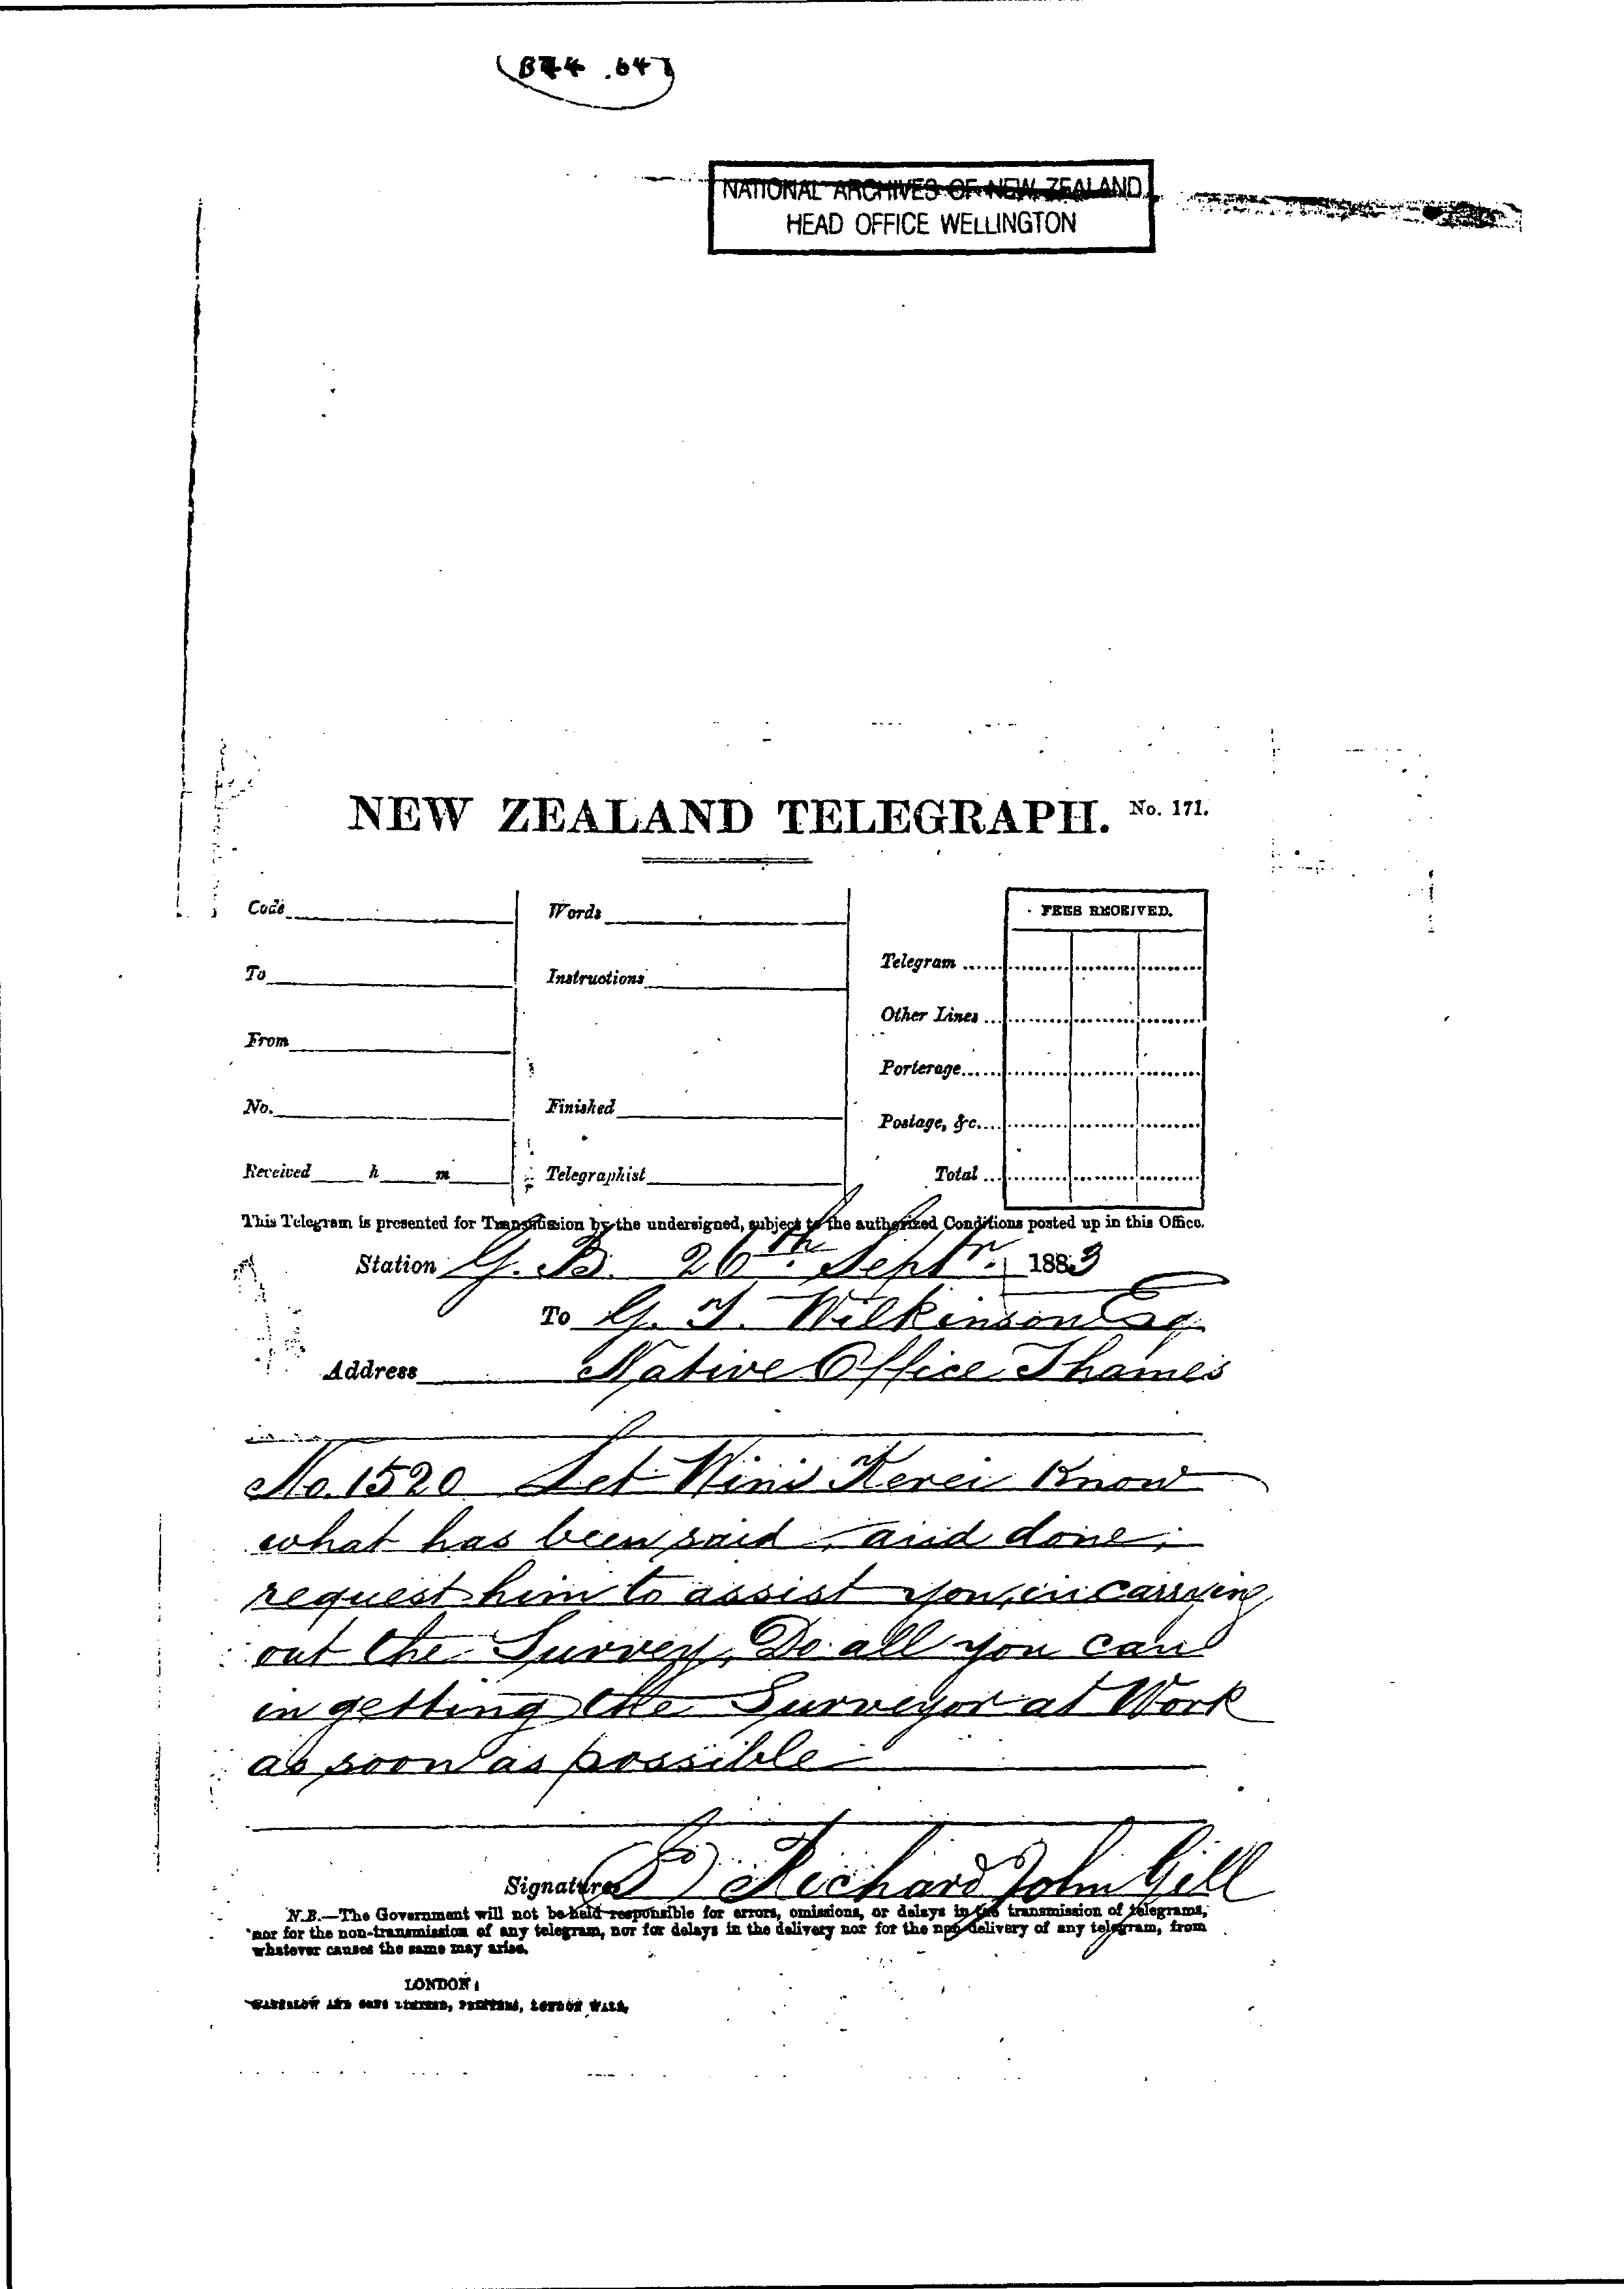 (B44.64)
NATIONAL ARCHIVES OF NEW ZEALAND
HEAD OFFICE WELLINGTON
NEW ZEALAND TELEGRAPH. No. 171.
Code Words FEES RECEIVED.
Telegram ......
To Instructions
Other Lines ...
From
Porterage......
No. Finished
Postage, &c....
Received h m Telegraphist Total ...
This Telegram is presented for Transmission by the undersigned, subject to the authorized Conditions posted up in this Office.
Station G. B. 26th. Septr. 1883
To G. T. Wilkinson Esq
Address Native Office Thames
No. 1520 Let Wini Kerei Know
what has been said, and done;
request him to assist you, in carrying
out the Survey, Do all you can
in getting the Surveyor at Work
as soon as possible
Signature Richard John Gill
N.B.—The Government will not be held responsible for errors, omissions, or delays in the transmission of telegrams,
nor for the non-transmission of any telegram, nor for delays in the delivery nor for the non-delivery of any telegram, from
whatever causes the same may arise.
LONDON:
WATERLOW AND SONS LIMITED, PRINTERS, LONDON WALL.